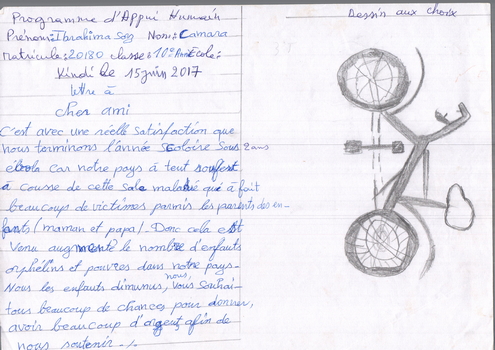 Programme d'Appui Humain
Prénom: Ibrahima Sog Nom: Camara
Matricule: 20180 classe: 10e Année École:
Kindi le 15 juin 2017
lettre à
cher ami
C'est avec une réelle Satisfaction que
nous terminons l'année Scoloire Sous 2 ans
car notre pays à tent souffert
à cousse de cette sale maladie qui à fait
beaucoup de victimes parmis les parents des en-
fants (maman et papa). Donc cela est
Venu augmenté le nombre d'enfants
orphélins et pouvres dans notre pays-
Nous les enfants dimunus, nous, Vous souhai-
tous beaucoup de chances pour donner,
avoir beaucoup d'argent afin de
nous soutenir -/.
Dessin aux choix